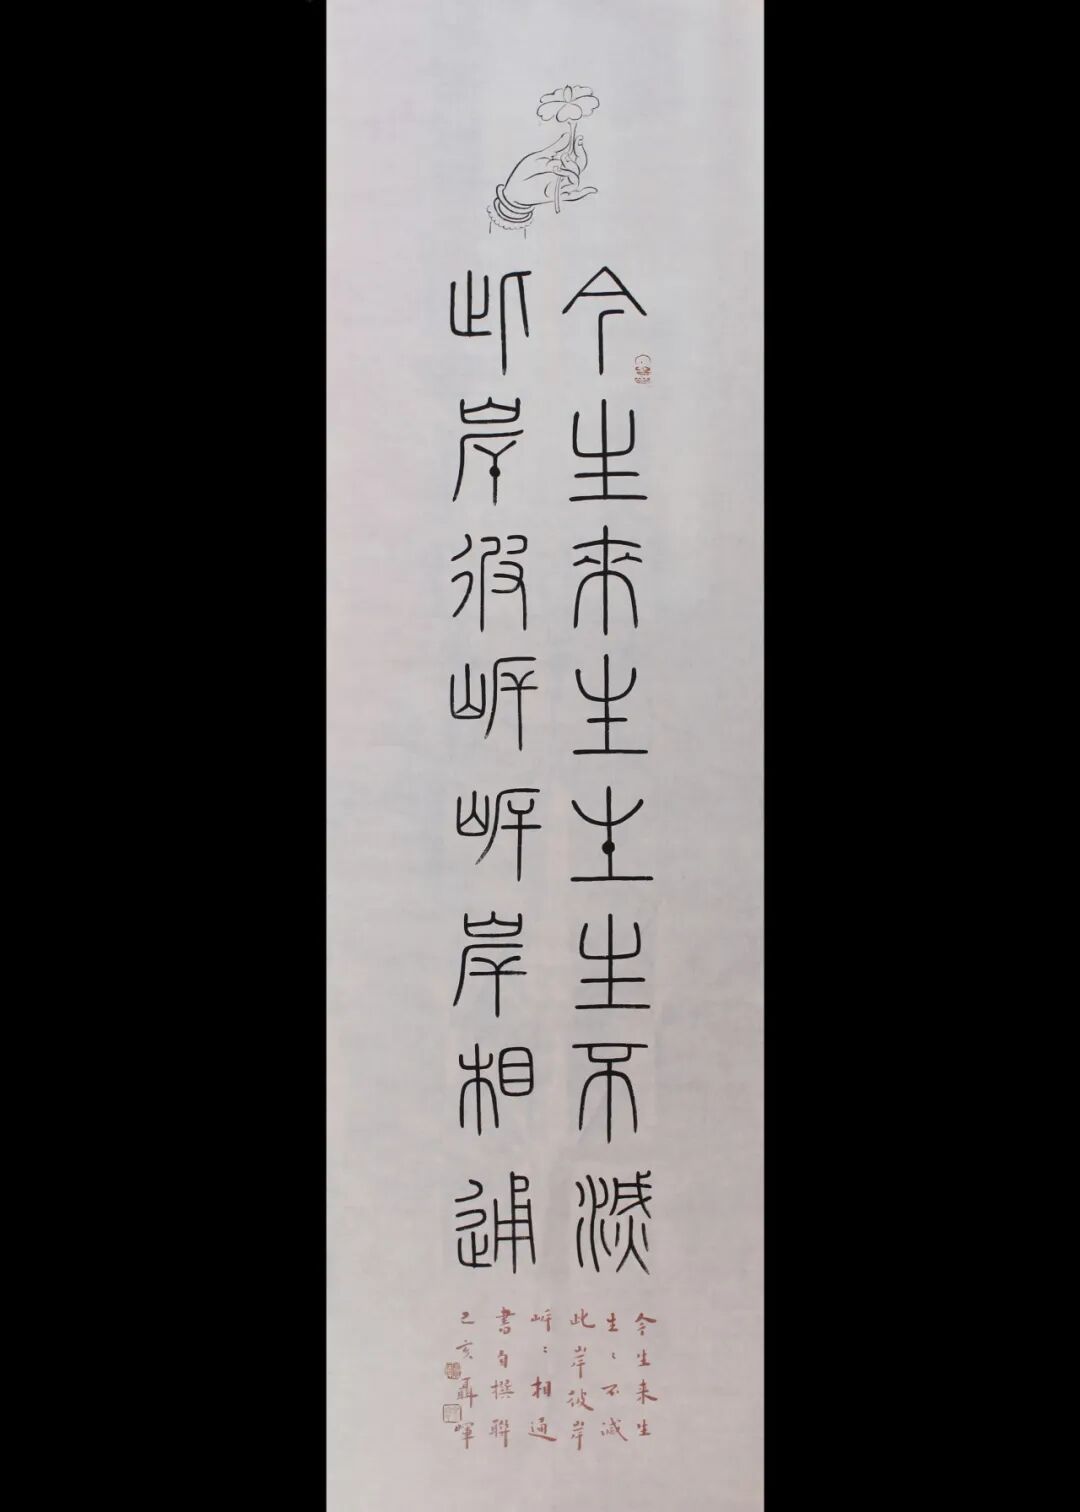 今生来生生生不滅
此岸彼岸岸岸相通
今生来生
生〻不滅
此岸彼岸
岸〻相通
書自撰聯
己亥聶暉